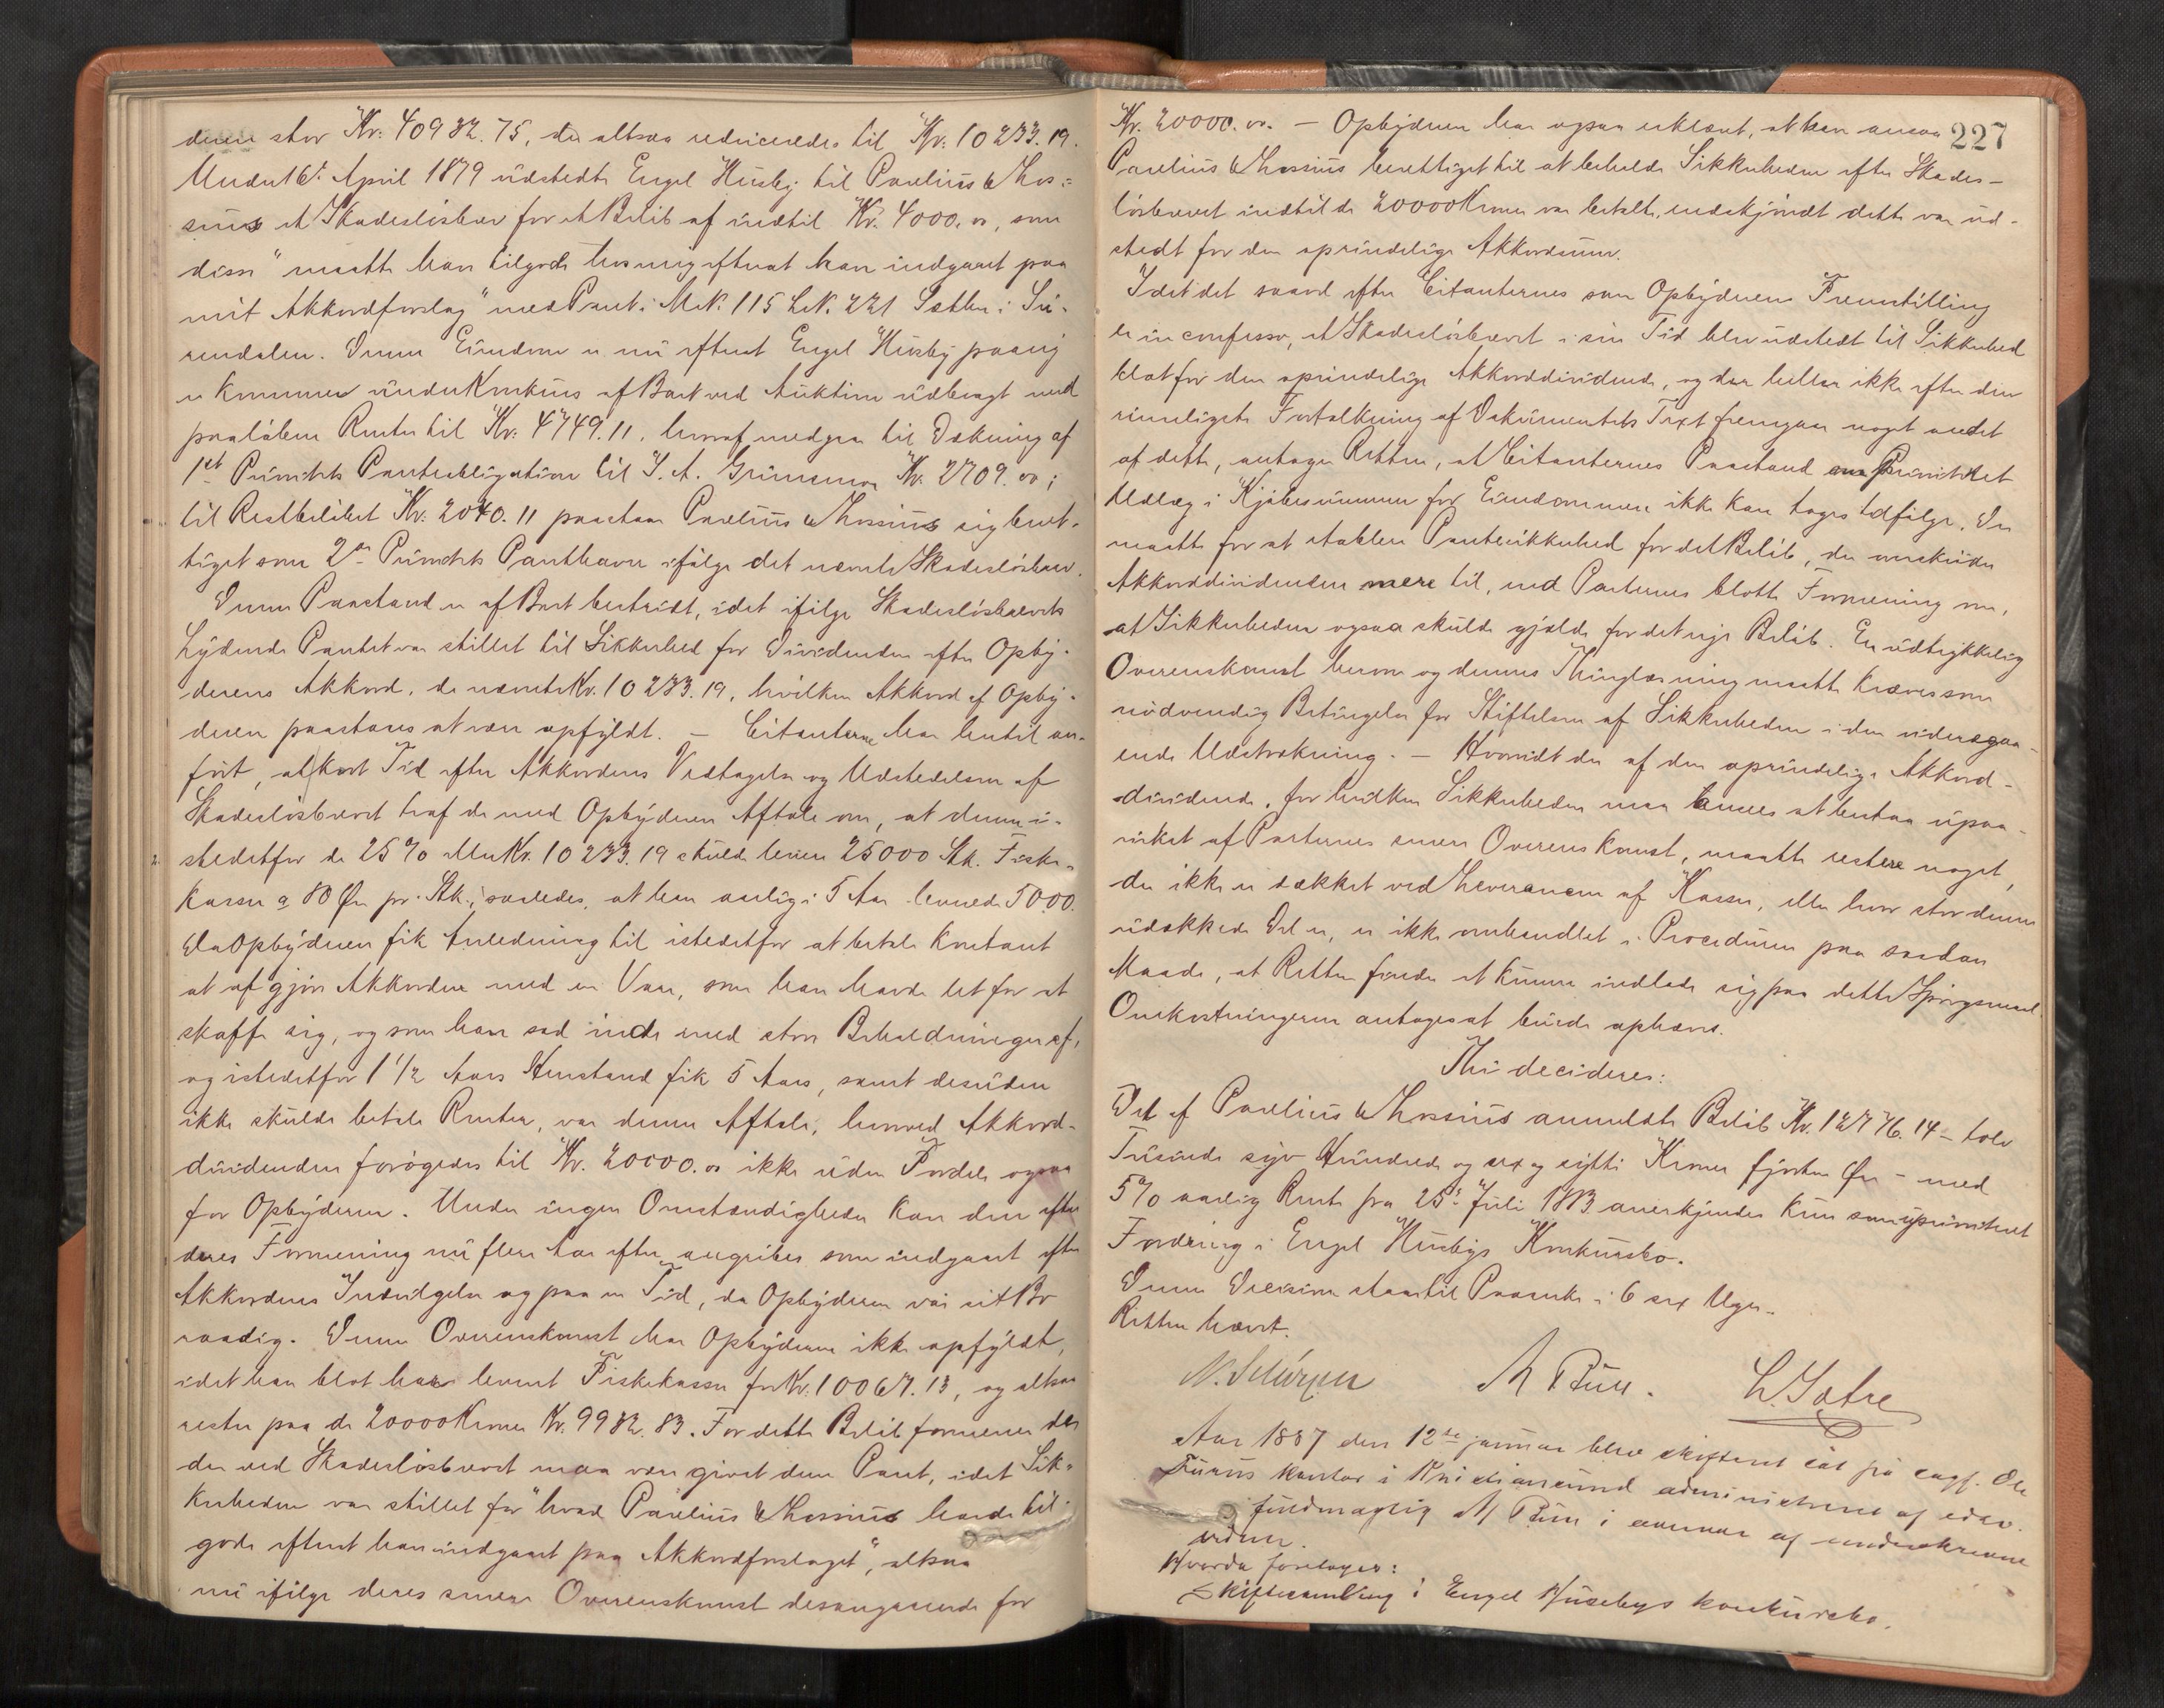 denes stor Kr. 40932.75, der altsaa reduceredes til Kr. 10233.19.
Under 16de April 1879 udstedte Engel Husby til Parelius & Lossius
et Skadesløsbrev for et Beløb af indtil Kr. 4000.00, som
disse "maatte have tilgode hos mig efterat have indgaaet paa
mit Akkordforslag" med Pant i Mt.N. 115 L.N. 221 Sætter i Su-
rendalen. Denne Eiendom er nu efterat Engel Husby paany
er kommen under Konkurs af Boet ved Auktion udbragt med
paaløbne Renter til Kr. 4749.11, hvoraf medgaar til Dækning af
1ste Prioritets Panteobligation til I. A. Grimsmo Kr. 2709.00;
til Restbeløbet Kr. 2040.11 paastaar Parelius & Lossius sig beret-
tiget som 2den Prioritets Panthaver ifølge det nævnte Skadesløsbrev.
Denne Paastand er af Boet bestridt, idet ifølge Skadesløsbrevets
Lydende Pantet var stillet til Sikkerhed for Dividenden efter Opby-
derens Akkord, de nævnte Kr. 10233.19, hvilken Akkord af Opby-
deren paastaaes at være opfyldt. – Citanterne har hertil an-
ført, at kort Tid efter Akkordens Vedtagelse og Udstedelsen af
Skadesløsbrevet traf de med Opbyderen Aftale om, at denne i-
stedetfor de 25 % eller Kr. 10233.19 skulde levere 25000 Stk. Fiske-
kasser a 80 Øre pr. Stk., saaledes, at han aarlig i 5 Aar leverede 5000.
Da Opbyderen fik Anledning til istedetfor at betale kontant
at afgjøre Akkorden med en Vare, som han havde let for at
skaffe sig, og som han sad inde med store Beholdninger af,
og istedetfor 1 1/2 Aars Henstand fik 5 Aars, samt desuden
ikke skulde betale Renter, var denne Aftale, hvorved Akkord-
dividenden forøgedes til Kr. 20000.00 ikke uden Fordele ogsaa
for Opbyderen. Under ingen Omstændigheder kan den efter
deres Formening nu flere Aar efter angribes som indgaaet efter
Akkordens Indvilgelse og paa en Tid, da Opbyderen var sit Bo
raadig. Denne Overenskomst har Opbyderen ikke opfyldt,
idet han blot har leveret Fiskekasser for Kr. 10067.13, og altsaa
rester paa de 20000 Kroner Kr. 9932.83. For dette Beløb formener de
der ved Skadesløsbrevet maa være givet dem Pant, idet Sik-
kerheden var stillet for "hvad Parelius & Lossius havde til-
gode efterat have indgaaet paa Akkordforslaget", altsaa
nu ifølge deres senere Overenskomst desangaaende for
227
Kr. 20000.00. – Opbyderen har ogsaa erklæret, at han ansaa
Parelius & Lossius berettiget til at beholde Sikkerheden efter Skades-
løsbrevet indtil de 20000 Kroner var betalte, endskjøndt dette var ud-
stedt for den oprindelige Akkordsum.
Idet det saavel efter Citanternes som Opbyderens Fremstilling
er in confesso, at Skadesløsbrevet i sin Tid blev udstedt til Sikkerhed
blot for den oprindelige Akkorddividende, og der heller ikke efter den
rimeligste Fortolkning af Dokumentets Text fremgaar noget andet
af dette, antager Retten, at Citanternes Paastand om prioriteret
Udlæg i Kjøbesummen for Eiendommen ikke kan tages tilfølge. Der
maatte for at etablere Pantesikkerhed for det Beløb, der overskrider
Akkorddividenden mere til, end Parternes blotte Formening om,
at Sikkerheden ogsaa skulde gjælde for det nye Beløb. En udtrykkelig
Overenskomst herom og dennes Thinglæsning maatte kræves som
nødvendig Betingelse for Stiftelsen af Sikkerheden i den videregaa-
ende Udstrækning. – Hvorvidt der af den oprindelige Akkord-
dividende, for hvilken Sikkerheden maa ansees at bestaa upaa-
virket af Parternes senere Overenskomst, maatte restere noget,
der ikke er dækket ved Leverancen af Kasser, eller hvor stor denne
udækkede Del er, er ikke omhandlet i Proceduren paa saadan
Maade, at Retten finder at kunne indlade sig paa dette Spørgsmaal.
Omkostningerne antages at burde ophæves.
Thi decideres:
Det af Parelius & Lossius anmeldte Beløb Kr. 12776.14 – tolv
Tusinde syv Hundrede og sex og sytti Kroner fjorten Øre – med
5 % aarlig Rente fra 25de Juli 1883 anerkjendes kun som uprioriteret
Fordring i Engel Husbys Konkursbo.
Denne Decision staar til Paaanke i 6 sex Uger.
Retten hævet.
M Bull. L. Sætre
Aar 1887 den 12te januar blev skifteret sat på sagf. Ole
Furus kontor i Kristiansund administreret af edsv.
fuldmægtig M Bull i nærvær af underskrevne
vidne.
Hvorda foretoges:
Skiftesamling i Engel Husebys konkursbo.